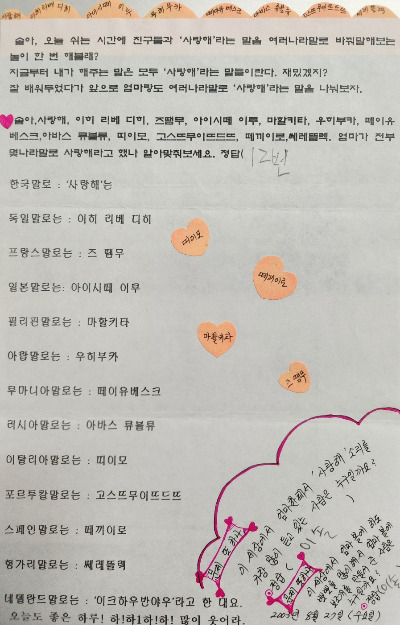 솔아, 오늘 쉬는 시간에 친구들과 '사랑해'라는 말을 여러나라말로 바꿔말해보는
놀이 한 번 해볼래?
지금부터 내가 해주는 말은 모두 '사랑해'라는 말들이란다. 재밌겠지?
잘 배워두었다가 앞으로 엄마랑도 여러나라말로 '사랑해'라는 말을 나눠보자.
솔아,사랑해, 이히 리베 디히, 즈땜무, 아이시떼 이루, 마할키타, 우히부카, 떼이유
베스크,아바스 뮤블뮤, 띠이모, 고스뜨무이뜨드뜨, 떼끼이로,쎄레뜰렉. 엄마가 전부
몇나라말로 사랑해라고 했나 알아맞춰보세요. 정답( 12번
한국말로 : '사랑해'는
독일말로는 : 이히 리베 디히
프랑스말로는 : 즈 땜무
일본말로는: 아이시떼 이우
필리핀말로는 : 마할키타
아랍말로는 : 우히부카
루마니아말로는 : 떼이유베스크
러시아말로는 : 아바스 뮤블뮤
이탈리아말로는 : 띠이모
포르투칼말로는 : 고스뜨무이뜨드뜨
스페인말로는 : 떼끼이로
헝가리말로는 : 쎄레뜰렉
네델란드말로는 : '이크하우반야우'라고 한 대요.
오늘도 좋은 하루! 하!하1하!하! 많이 웃어라.
띠이모
떼끼이로
마할키타
즈 땜무
이 세상에서 엄마한테서 '사랑해' 소리를
가장 많이 듣고 있는 사람은 누구일까요?
정답( 이솔 )
2003년 8월 27일 (수요일)